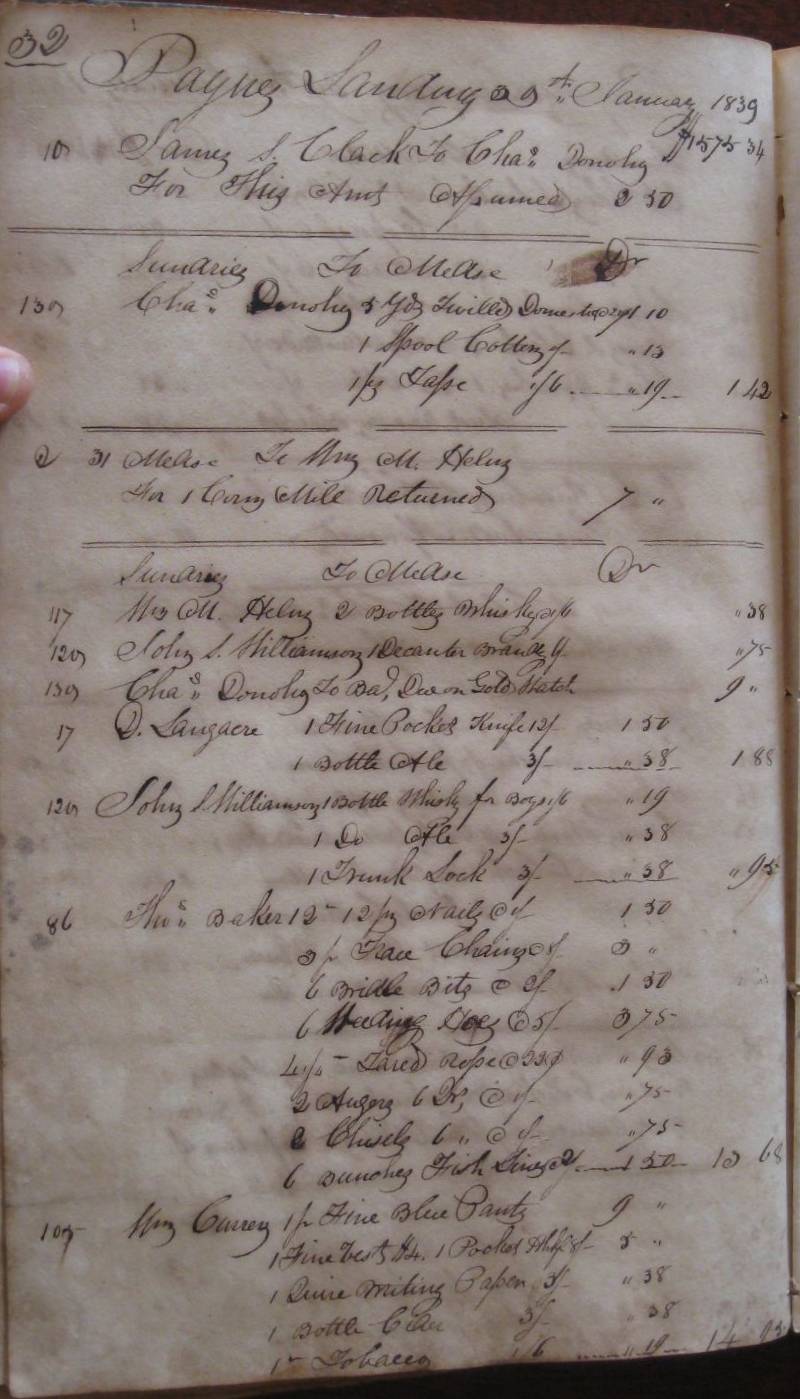 32
Paynes Landing 30th January 1839
$1575 34
James S. Clack To Chas. Donohy
For This Amt Assumed 2 50
Sundries To Mdse Dr
130 Chas. Donohy 5 Yds Twilled Domestic 1 10
1 Spool Cotton " 13
1 ps Tape 1/6 " 19 1 42
2 31 Mdse To Wm M. Helm
For 1 Corn Mill Returned 7 "
Sundries To Mdse Dr
117 Wm M. Helm 2 Bottles Whisky 1/6 " 38
120 John S. Williamson 1 Decanter Brandy " 75
130 Chas. Donohy To Bal, Due on Gold Watch 9 "
17 D. Langacre 1 Fine Pocket Knife 12/ 1 50
1 Bottle Ale 3/ " 38 1 88
120 John S Williamson 1 Bottle Whisky for Boys 1/6 " 19
1 Do Ale 3/ " 38
1 Trunk Lock 3/ " 38 " 95
86 Thos. Baker 12 12 py Nails @ 1/ 1 50
3 pr Trace Chains @ 8/ 3 "
6 Bridle Bits @ 2/ 1 50
6 Weeding Hoes @ 5/ 3 75
Tared Rope @ " 93
2 Augers 6 Qr, @ " 75
2 Chisels 6 " @ " 75
6 Bunches Fish Lines 2/ 1 50 13 68
105 Wm Currey 1 pr Fine Blue Pants 9 "
1 Fine Vest $4. 1 Pocket 8/ 5 "
1 Quire Writing Paper 3/ " 38
1 Bottle Cider 3/ " 38
1 Tobacco 1/6 " 19 14 95